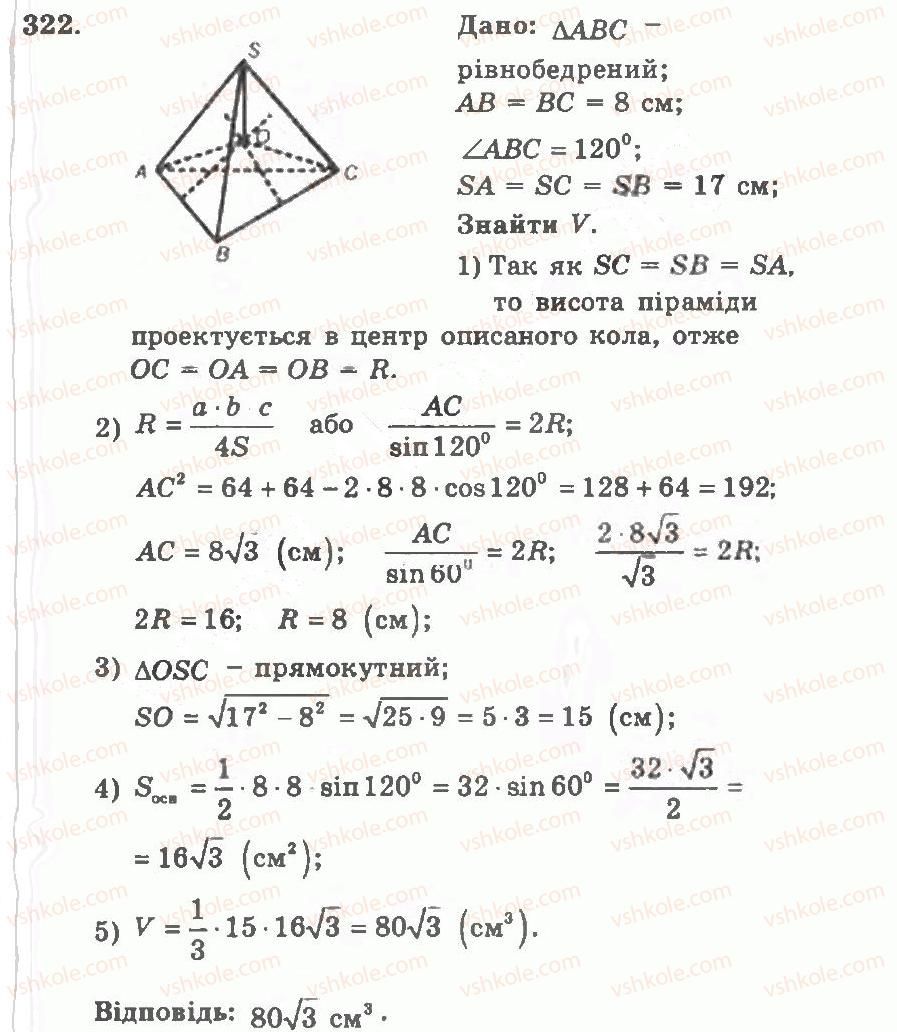 322.
Дано: ΔABC –
рівнобедрений;
AB = BC = 8 см;
∠ABC = 120⁰;
SA = SC = SB = 17 см;
Знайти V.
1) Так як SC = SB = SA,
то висота піраміди
проектується в центр описаного кола, отже
OC = OA = OB = R.
2) R = a · b c / 4S або AC / sin 120⁰ = 2R;
AC² = 64 + 64 – 2 · 8 · 8 · cos 120⁰ = 128 + 64 = 192;
AC = 8√3 (см); AC / sin 60⁰ = 2R; 2 · 8√3 / √3 = 2R;
2R = 16; R = 8 (см);
3) ΔOSC – прямокутний;
SO = √(17² – 8²) = √(25 · 9) = 5 · 3 = 15 (см);
4) Sосн = 1/2 · 8 · 8 · sin 120⁰ = 32 · sin 60⁰ = 32 · √3 / 2 =
= 16√3 (см²);
5) V = 1/3 · 15 · 16√3 = 80√3 (см³).
Відповідь: 80√3 см³.
S
A
O
C
B
vshkole.com